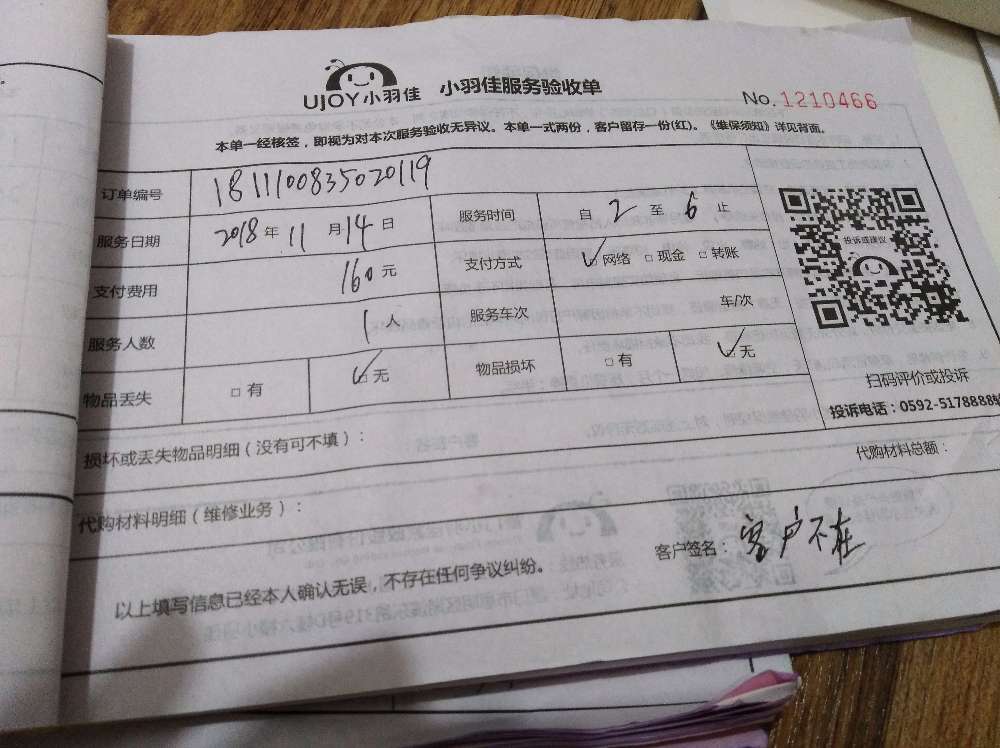 UJOY小羽佳 小羽佳服务验收单
No.1210466
本单一经核签，即视为对本次服务验收无异议。本单一式两份，客户留存一份(红)。《维保须知》详见背面。
订单编号 1811100835020119
服务日期 2018年11月14日 服务时间 自2至6止
支付费用 160元 支付方式 ☑网络 □现金 □转账
服务人数 1人 服务车次 车/次
物品丢失 □有 ☑无 物品损坏 □有 ☑无
投诉或建议
扫码评价或投诉
投诉电话：0592-5178888转
损坏或丢失物品明细（没有可不填）：
代购材料明细（维修业务）： 代购材料总额：
以上填写信息已经本人确认无误，不存在任何争议纠纷。 客户签名：客户不在